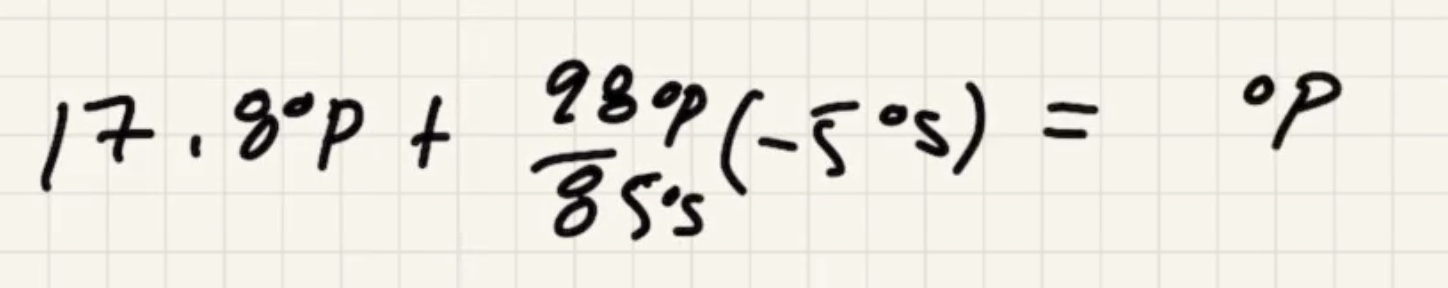 17.8°p + 98°p/85°s (-5°s) = °p